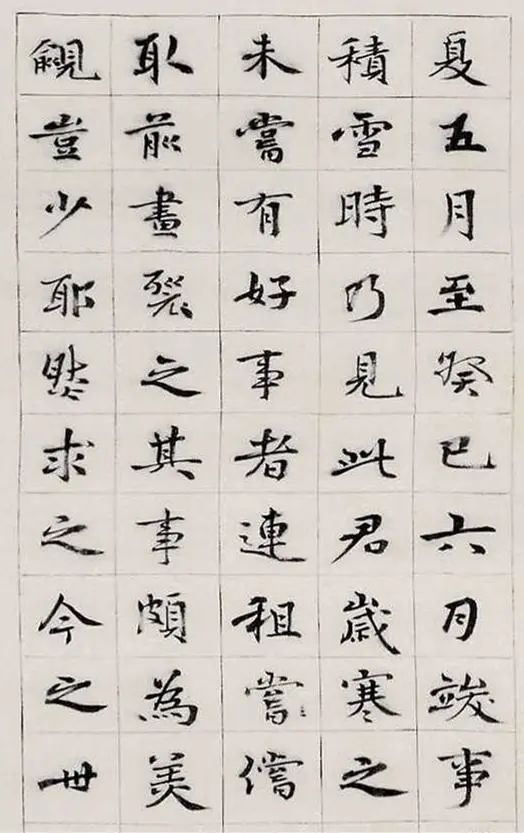 夏五月至癸巳六月竣事
積雪時乃見此君歲寒之
未嘗有好事者連租嘗償
取前畫裂之其事頗為美
豈少耶然求之今之世